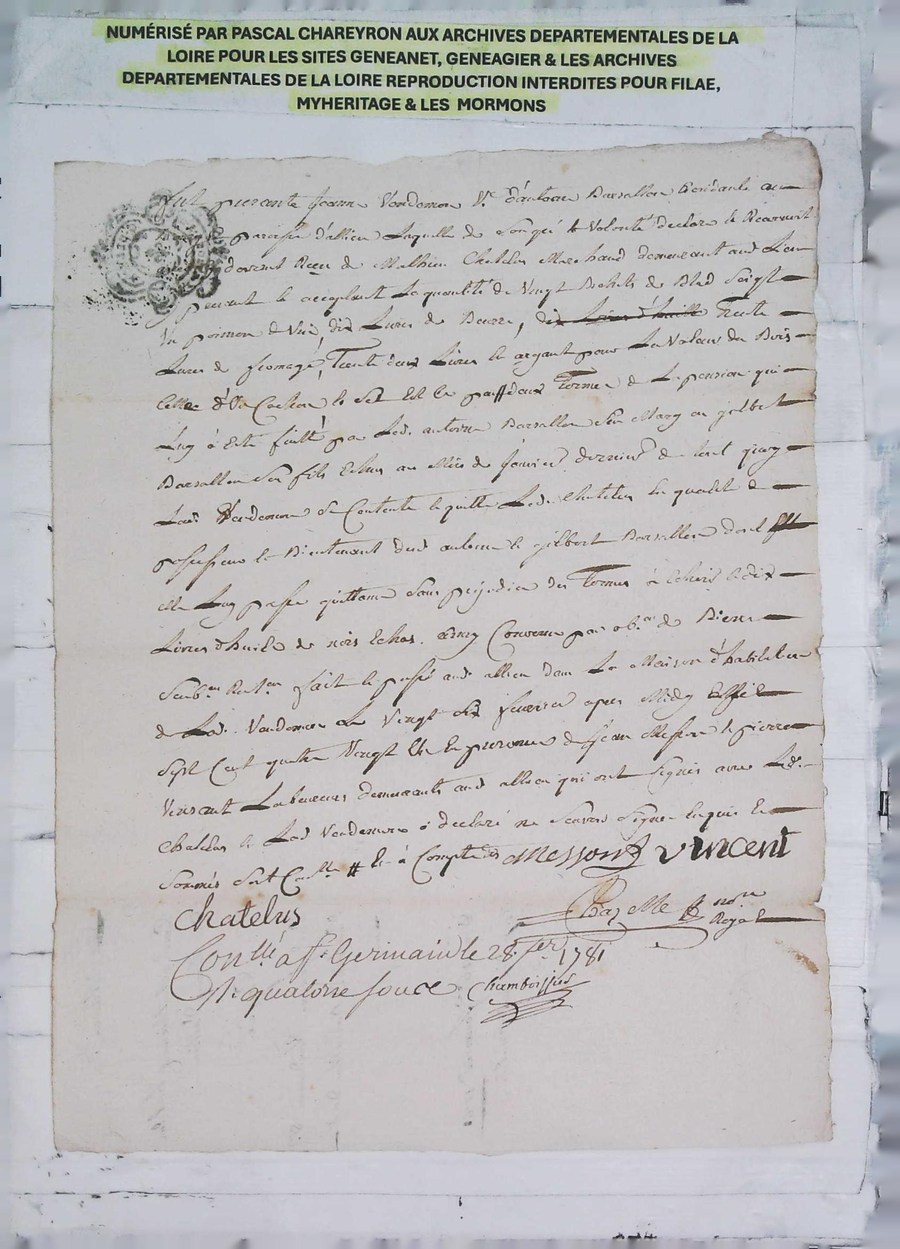 NUMÉRISÉ PAR PASCAL CHAREYRON AUX ARCHIVES DEPARTEMENTALES DE LA
LOIRE POUR LES SITES GENEANET, GENEAGIER & LES ARCHIVES
DEPARTEMENTALES DE LA LOIRE REPRODUCTION INTERDITES POUR FILAE,
MYHERITAGE & LES MORMONS
fut presante Jeanne Vendemon Vve d'antoine Barsallon Residante au
paroisse d'allieu Laquelle de Son gré & Volonté declare & Reconnoit
Reçu de Mathieu Chatelus Marchand demeurant aud Lieu
present & acceptant La quantité de Vingt de Bled Soigle
Un de Vin, dix Livres de Beurre, Trente
Livres de fromage, Trente deux Livres en argant pour La Valeur du Bois
Celle d'Un Cochon Le pour deux Termes de La pension qui
Luy a Esté par Led. antoine Barsallon Son Mary ou jilbert
Barsallon Son fils Echus au Mois de Janvier dernier de tout quoy
Lad. Vendemon Se Contente & quitte Led. Chatelus En qualité de
possesseur & Bientenant dud antoine & gilbert Barsallon dont
elle Luy passe quittance Sans prejudice des Termes à Echoir & dix
Livres d'huile de nois Echus. Ainsy Convenu par ob.on de Biens
fait & passé aud allieu dans La Maison d'habitation
de Lad. Vendemon Le Vingt Six fevrier apres Midy
Sept Cent quatre Vingt Un En presence de Jean Messon & pierre
Vincent Laboureurs demeurants aud allieu qui ont Signés avec Led.
Chatelus & Lad Vendemon a declaré ne Scavoir Signer Enquis &
Sommés à Compte des Messon Vincent
Chatelus Chazelle no.re Royal
Con.llé a St. Germain le 28 fer. 1781
R. quatorze sous Chamboissier